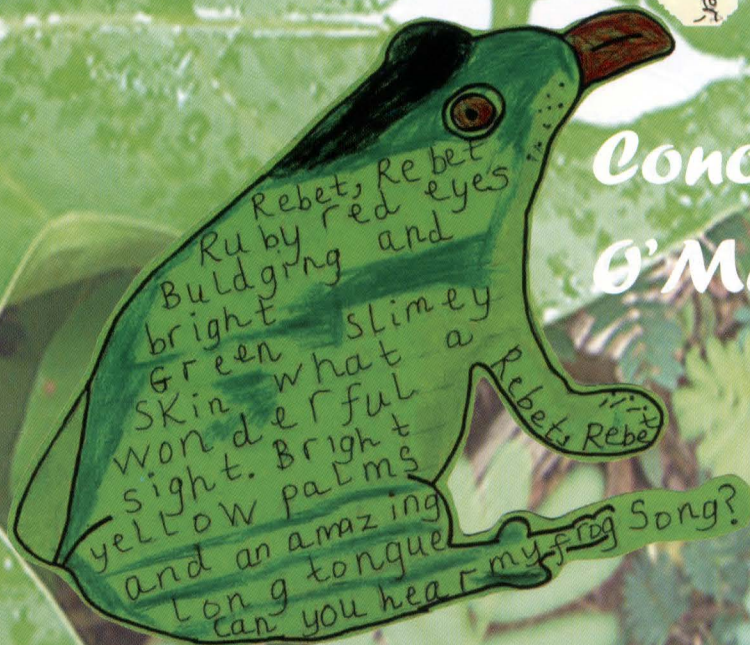 Rebet, Rebet
Ruby red eyes
Buldging and
bright
Green Slimey
Skin what a
wonderful
sight. Bright
yellow palms
and an amazing
long tongue
can you hear my frog Song?
Rebet, Rebet
Conc
O'M